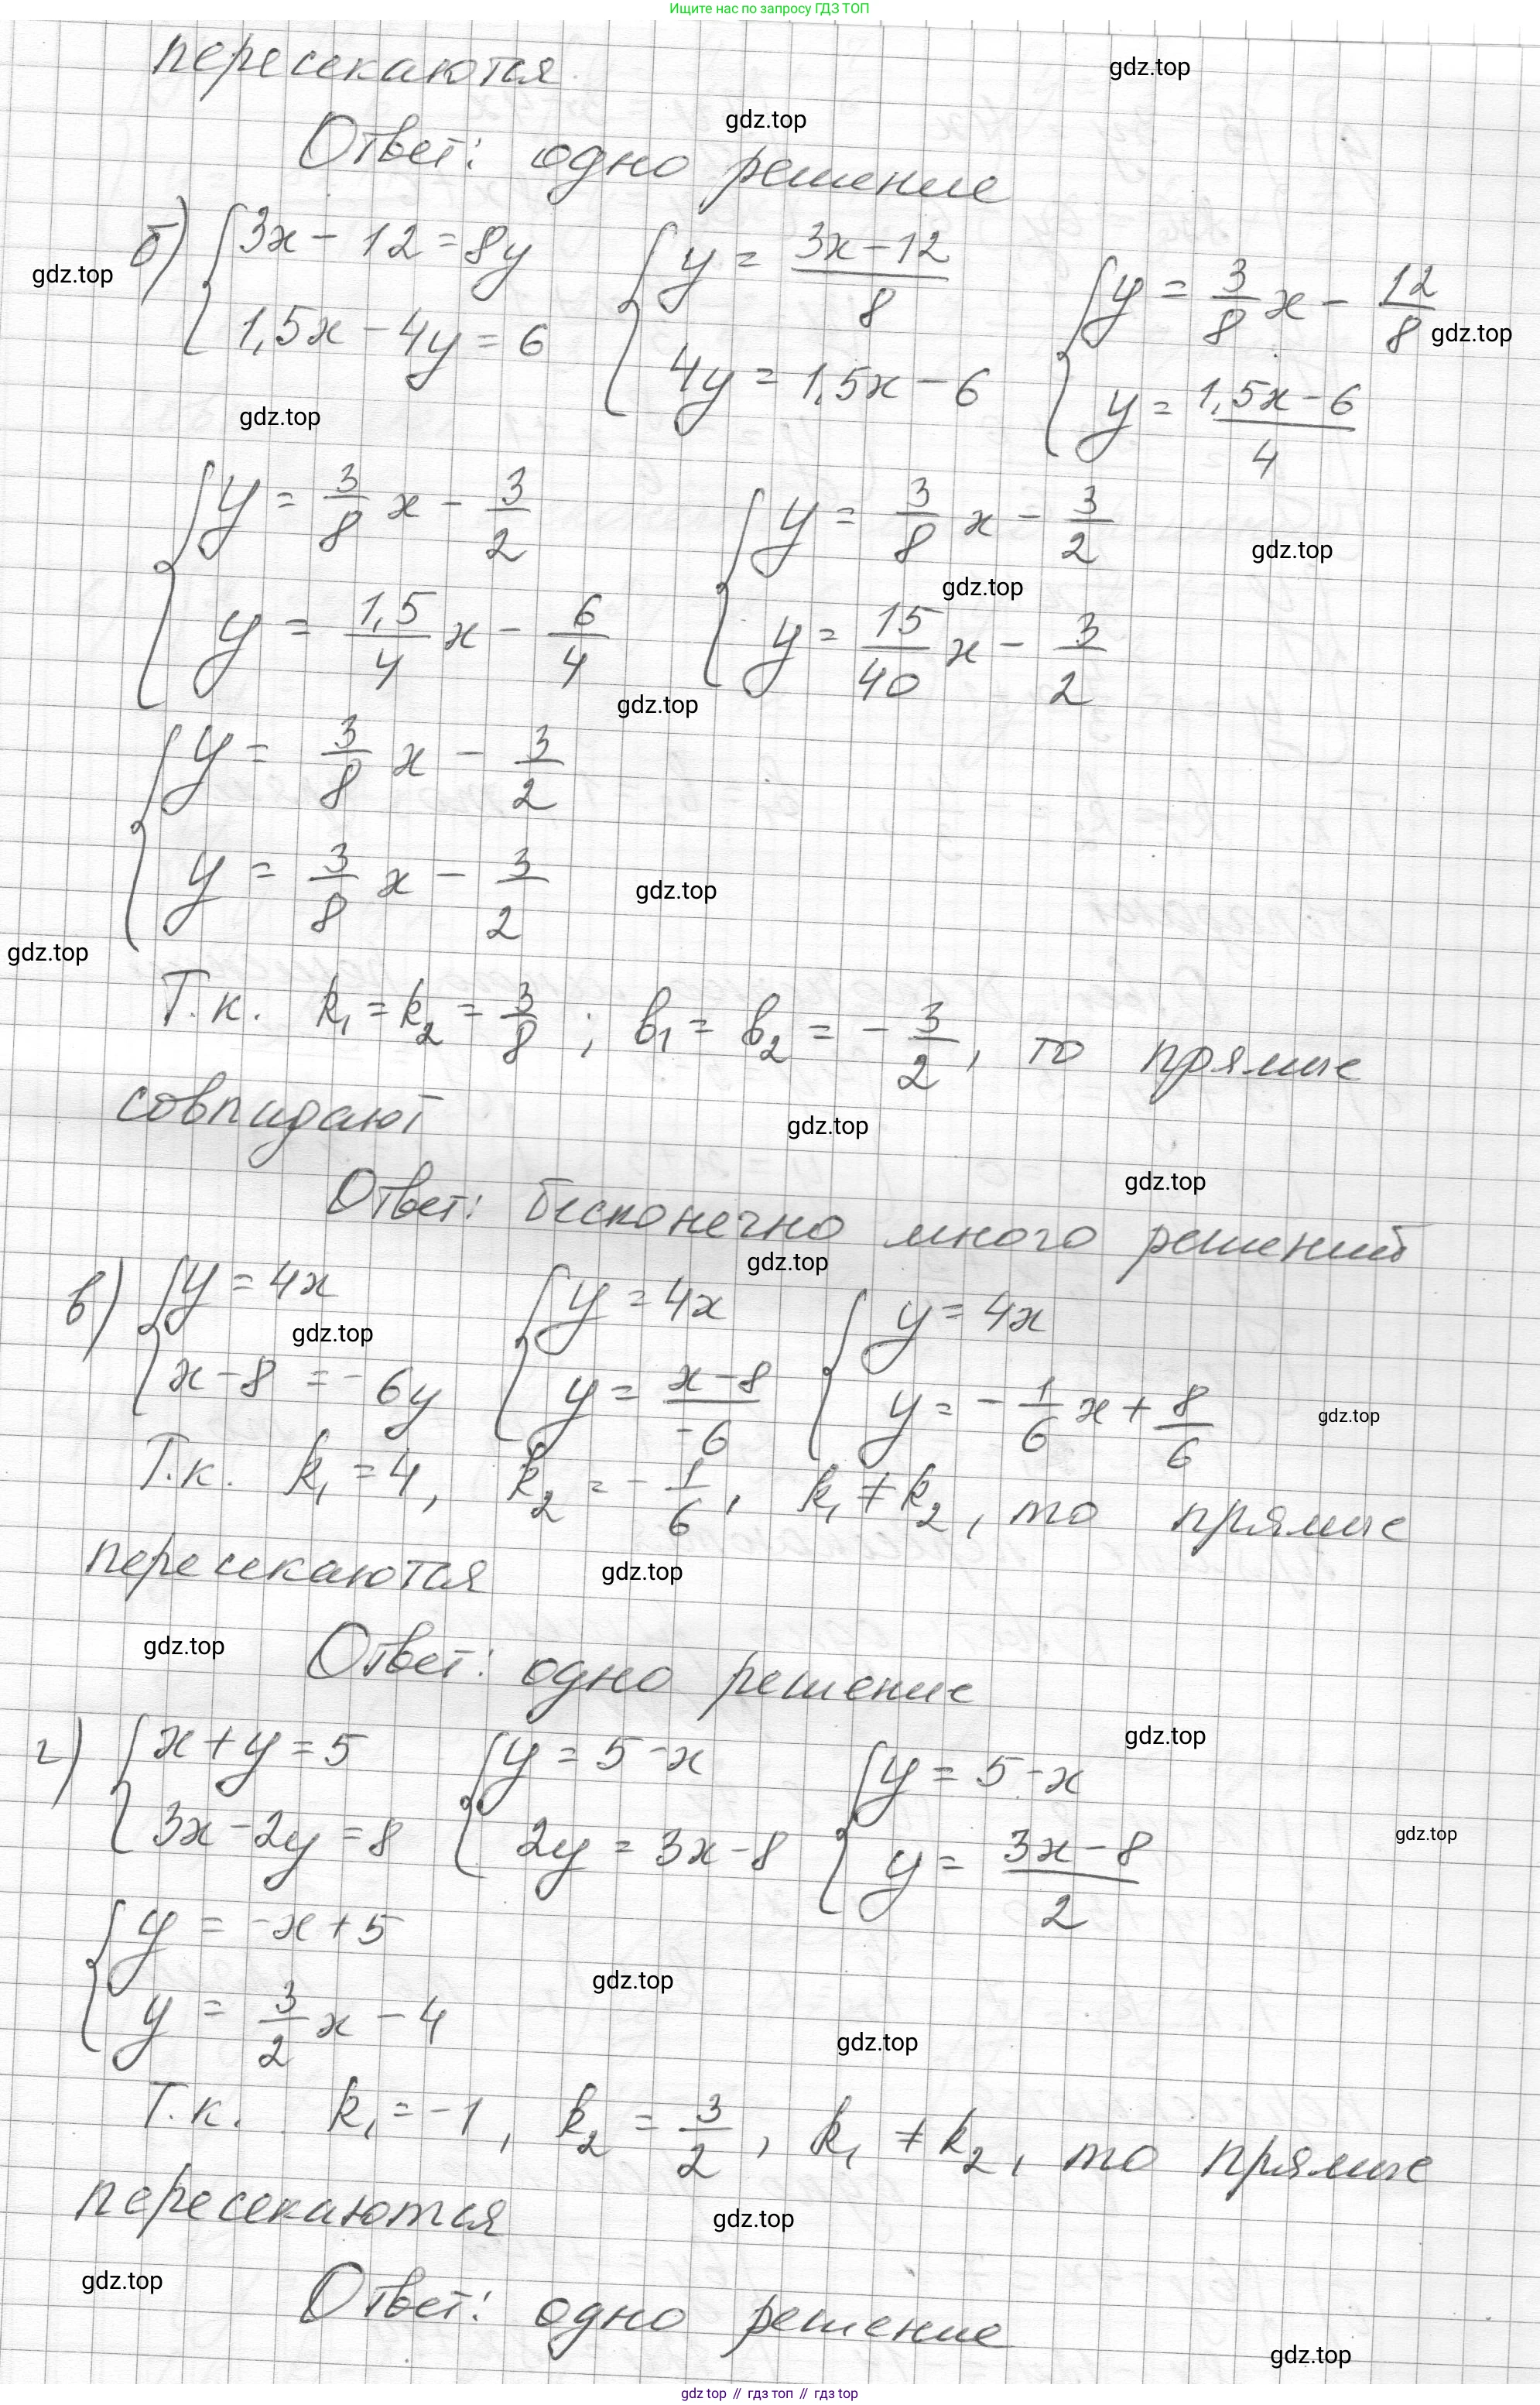 Ищите нас по запросу ГДЗ ТОП
пересекаются.
Ответ: одно решение
б) { 3x - 12 = 8y { y = (3x - 12)/8 { y = 3/8 x - 12/8
1,5x - 4y = 6 4y = 1,5x - 6 y = (1,5x - 6)/4
{ y = 3/8 x - 3/2 { y = 3/8 x - 3/2
y = 1,5/4 x - 6/4 y = 15/40 x - 3/2
{ y = 3/8 x - 3/2
y = 3/8 x - 3/2
Т.к. k₁ = k₂ = 3/8 ; b₁ = b₂ = - 3/2, то прямые
совпадают
Ответ: бесконечно много решений
в) { y = 4x { y = 4x { y = 4x
x - 8 = - 6y y = (x - 8)/-6 y = - 1/6 x + 8/6
Т.к. k₁ = 4, k₂ = - 1/6, k₁ ≠ k₂, то прямые
пересекаются
Ответ: одно решение
г) { x + y = 5 { y = 5 - x { y = 5 - x
3x - 2y = 8 2y = 3x - 8 y = (3x - 8)/2
{ y = -x + 5
y = 3/2 x - 4
Т.к. k₁ = -1, k₂ = 3/2, k₁ ≠ k₂, то прямые
пересекаются
Ответ: одно решение
gdz.top
gdz.top // гдз топ // гдз top